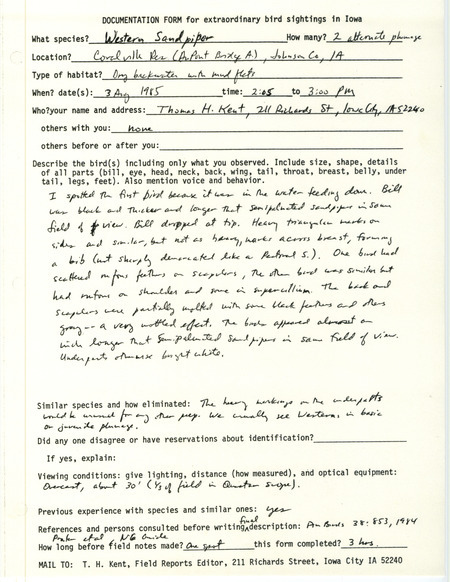 DOCUMENTATION FORM for extraordinary bird sightings in Iowa
What species? Western Sandpiper How many? 2 alternate plumage
Location? Coralville Res (DuPont Bridge A), Johnson Co, IA
Type of habitat? Dry backwater with mud flats
When? date(s): 3 Aug 1985 time: 2:05 to 3:00 PM
Who? your name and address: Thomas H. Kent, 211 Richards St, Iowa City, IA 52240
others with you: none
others before or after you:
Describe the bird(s) including only what you observed. Include size, shape, details
of all parts (bill, eye, head, neck, back, wing, tail, throat, breast, belly, under
tail, legs, feet). Also mention voice and behavior.
I spotted the first bird because it was in the water feeding down. Bill
was black and thicker and longer that semipalmated sandpiper in same
field of view. Bill drooped at tip. Heavy triangular marks on
sides and similar, but not as heavy, marks across breast, forming
a bib (not sharply demarcated like a Pectoral S.). One bird had
scattered rufous feathers on scapulars, the other bird was similar but
had rufous on shoulder and some in supercilium. The back and
scapulars were partially molted with some black feathers and others
gray -- a very mottled effect. The body appeared almost an
inch longer that Semipalmated Sandpipers in same field of view.
Underparts otherwise bright white.
Similar species and how eliminated: The heavy markings on the underparts
would be unusual for any other peep. We usually see Westerns in basic
or juvenile plumage.
Did any one disagree or have reservations about identification?
If yes, explain:
Viewing conditions: give lighting, distance (how measured), and optical equipment:
Overcast, about 30' (1/3 of field in Questar scope).
Previous experience with species and similar ones: yes
References and persons consulted before writing final description: Am Birds 38:853, 1984
Prater et al NG Guide
How long before field notes made? One spot this form completed? 3 hrs.
MAIL TO: T. H. Kent, Field Reports Editor, 211 Richards Street, Iowa City IA 52240